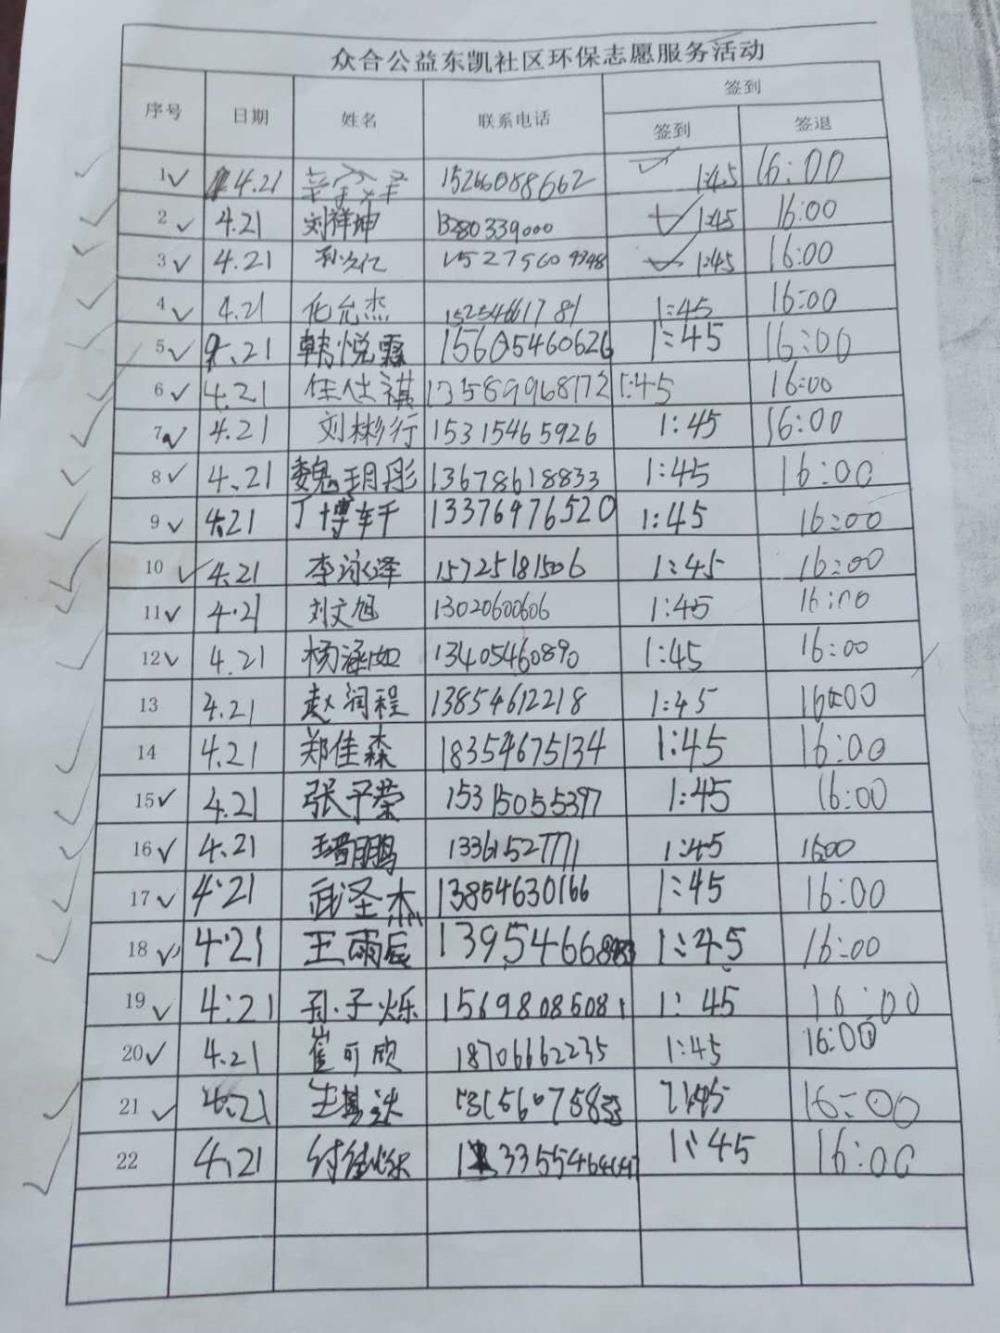 众合公益东凯社区环保志愿服务活动
序号 日期 姓名 联系电话 签到
签到 签退
1 4.21 15266088662 1:45 16:00
2 4.21 刘祥坤 13280339000 1:45 16:00
3 4.21 1:45 16:00
4 4.21 化允杰 15254661781 1:45 16:00
5 4.21 韩悦霖 15605460626 1:45 16:00
6 4.21 任仕祺 13589968172 1:45 16:00
7 4.21 刘彬行 15315465926 1:45 16:00
8 4.21 魏玥彤 13678618833 1:45 16:00
9 4.21 丁博轩 13376476520 1:45 16:00
10 4.21 李泳泽 15725181506 1:45 16:00
11 4.21 刘文旭 13020600606 1:45 16:00
12 4.21 杨涵如 13405460890 1:45 16:00
13 4.21 赵润程 13854612218 1:45 16:00
14 4.21 郑佳森 18354675134 1:45 16:00
15 4.21 张予荣 15315055397 1:45 16:00
16 4.21 13361527771 1:45 16:00
17 4.21 武泽杰 13854630166 1:45 16:00
18 4.21 王雨辰 1:45 16:00
19 4:21 孙子烁 15698086081 1:45 16:00
20 4.21 崔可欣 18706662235 1:45 16:00
21 4.21 1:45 16:00
22 4.21 1:45 16:00